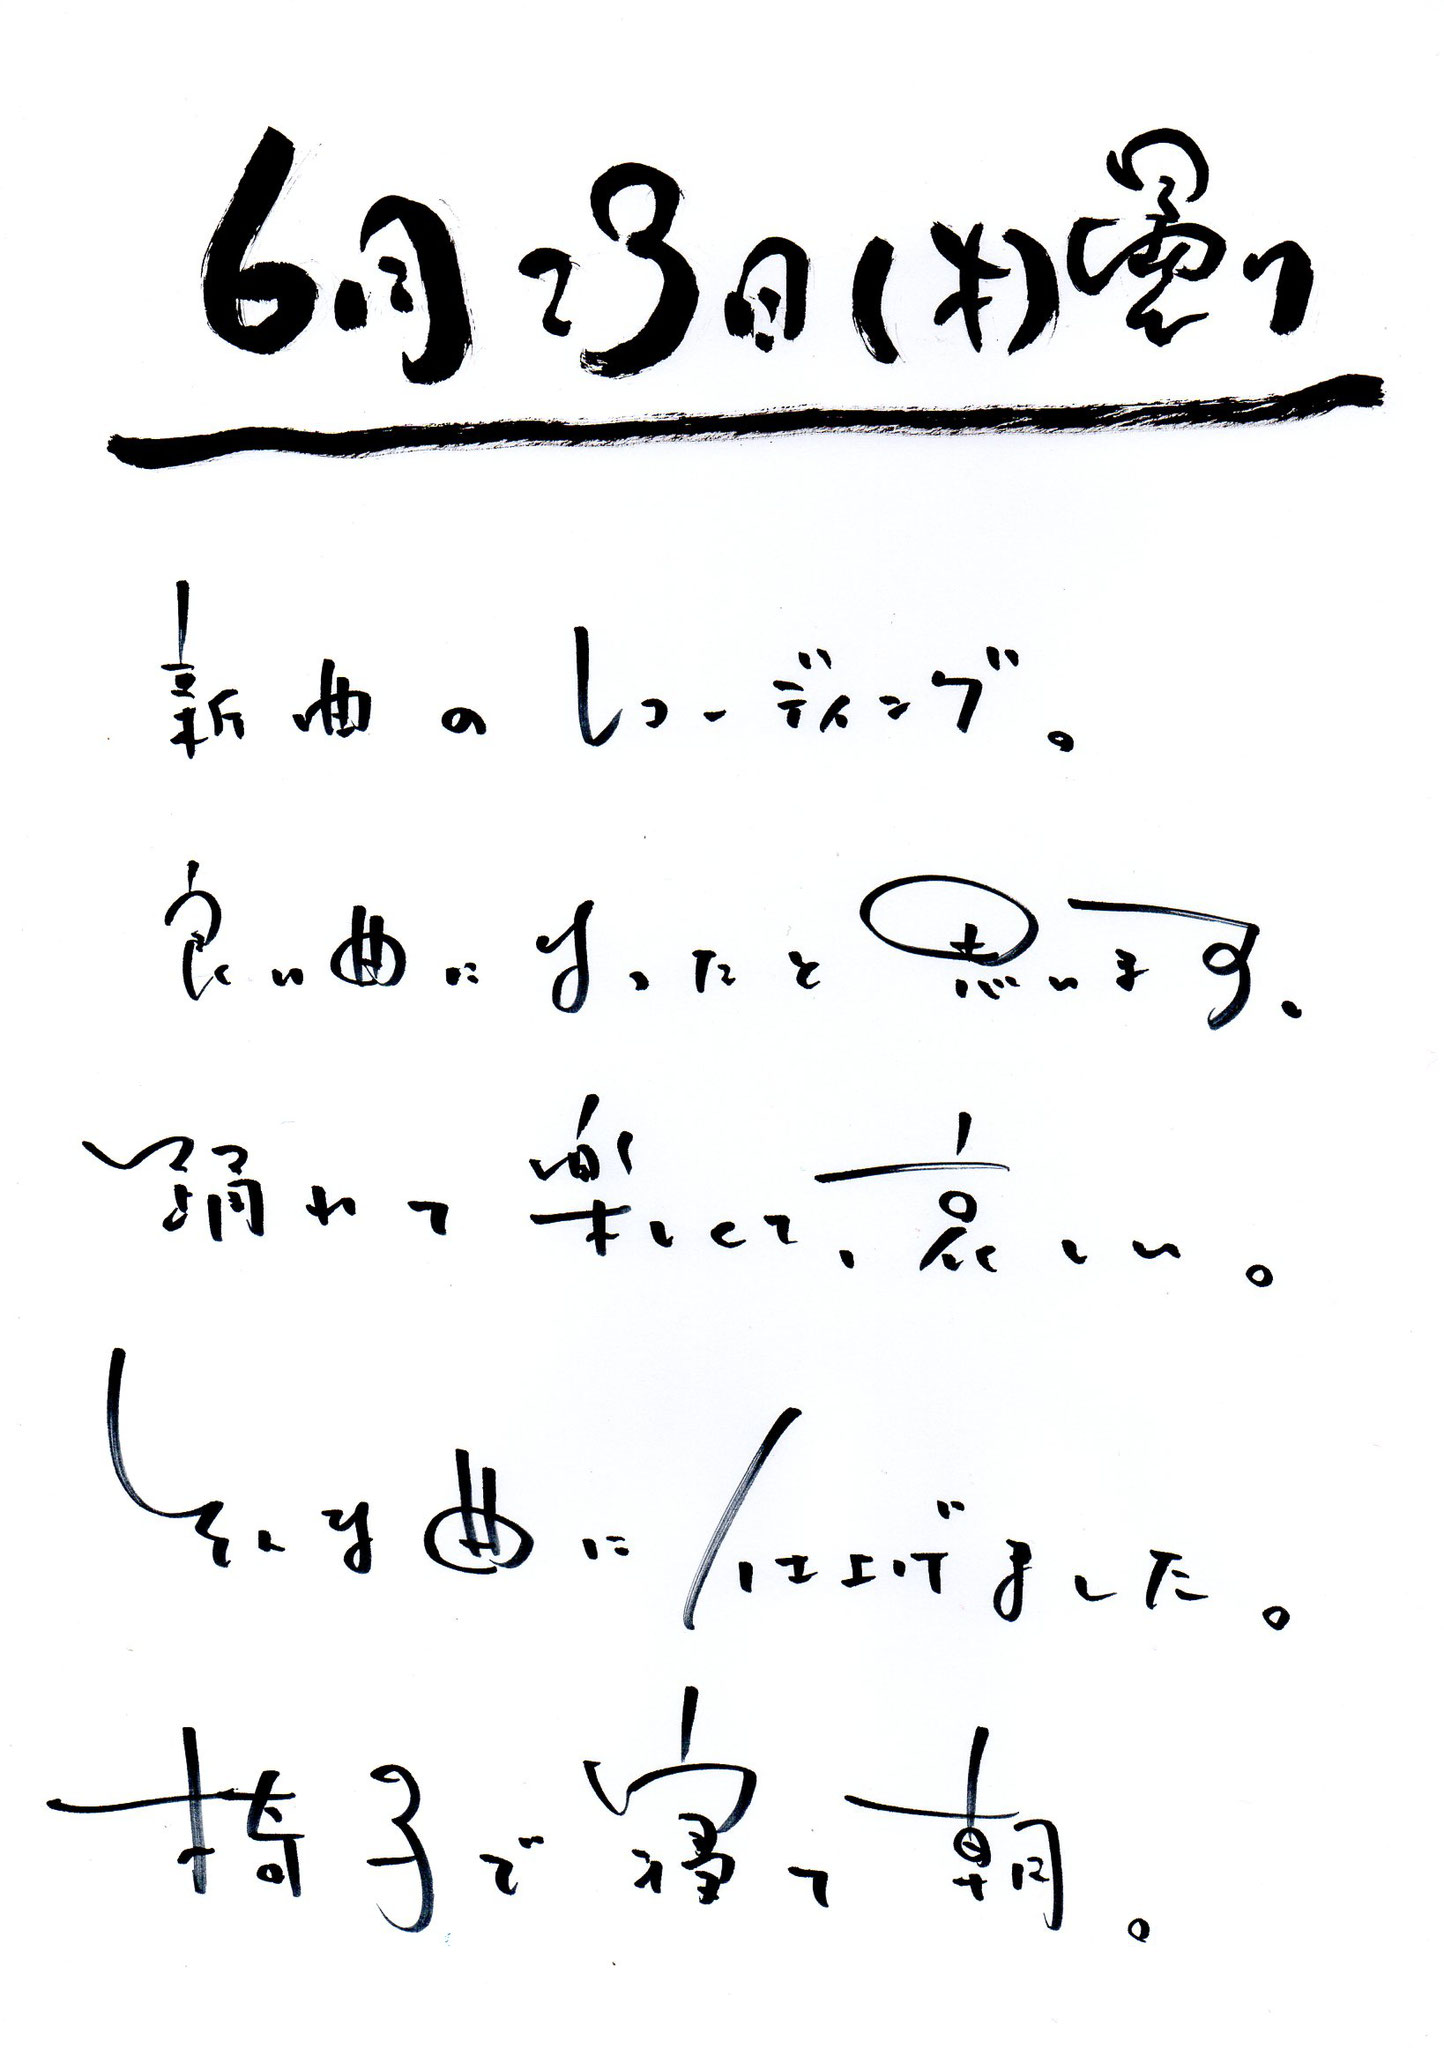 6月23日(木)曇り
新曲のレコーディング。
良い曲になったと思います、
踊れて楽しくて、哀しい。
そんな曲に仕上げました。
椅子で寝て朝。